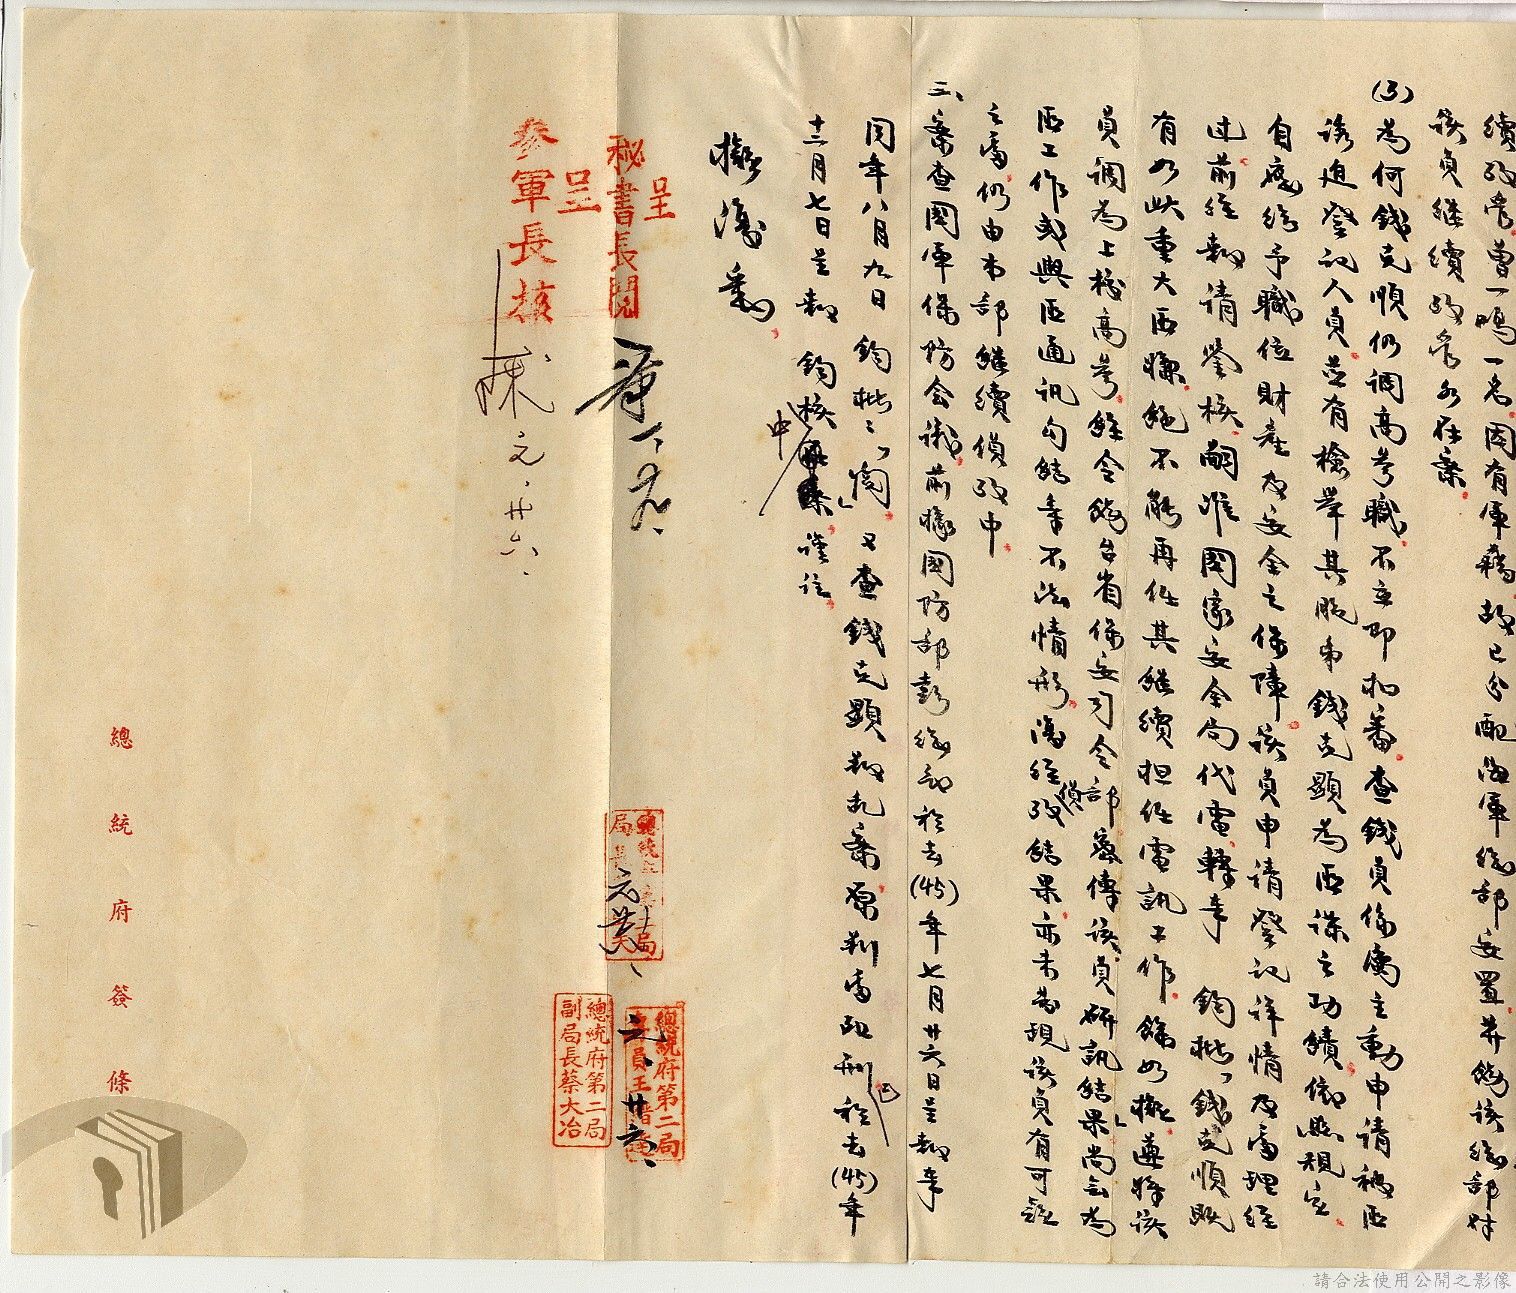 續改當曹一鳴一名因有軍籍故已分配海軍總部安置并飭該總部對
該員繼續改當各在案
(3)為何錢克順仍調高參職不立即扣審查錢員係屬主動申請被匪
誘迫登記人員並有檢舉其胞弟錢克顯為匪諜之功績依照規定
自應給予職位財產及安全之保障該員申請登記詳情及處理經
過前經報請鑒核嗣准國家安全局代電轉奉 鈞批「錢克順既
有如此重大匪嫌絕不能再任其繼續担任電訊工作餘如擬」遵將該
員調為上校高參經令飭台省保安司令部密傳該員研訊結果尚無為
匪工作或與匪通訊勾結等不法情形復經偵改結果亦未發現該員有可疑
之處仍由本部繼續偵改中
三、案查國軍保防會議前據國防部彭總長於去(45)年七月廿六日呈報奉
同年八月九日 鈞批：「閱」又查錢克顯叛亂案原判處死刑已於去(45)年
十二月七日呈報 鈞核中謹註
擬復奉
呈
秘書長閱
呈
參軍長核
元、廿六、
總統府第二局
副局長蔡大冶
總統府第二局
元、廿六、
總統府簽條
請合法使用公開之影像